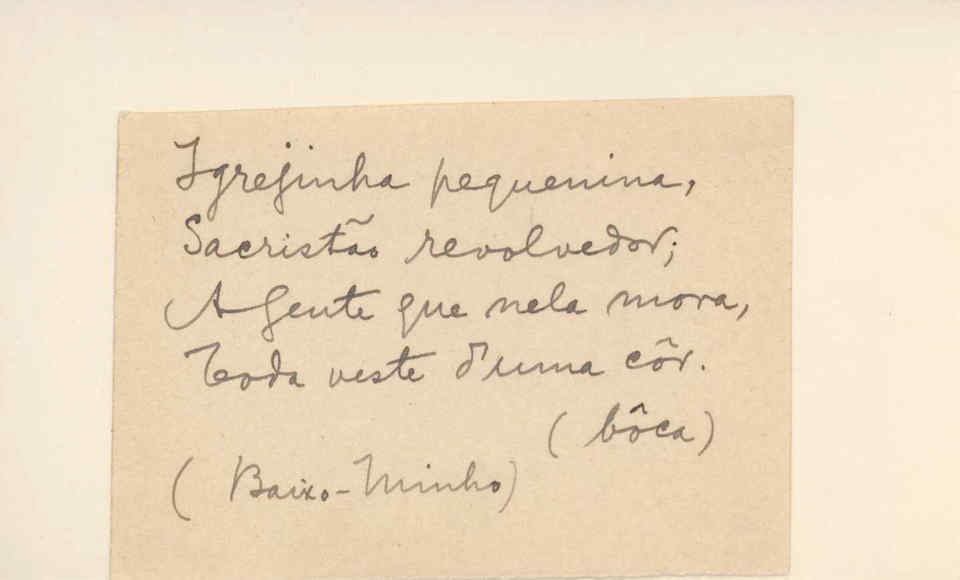 Igrejinha pequenina,
Sacristão revolvedor;
A gente que nela mora,
Toda veste d'uma côr.
(bôca)
(Baixo-Minho)